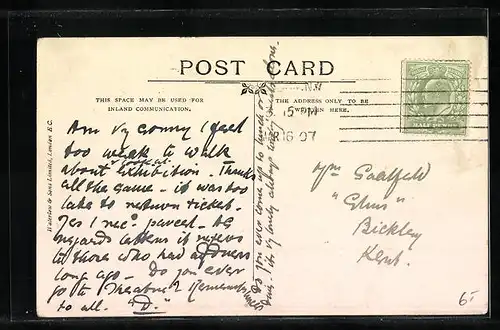 POST CARD
THIS SPACE MAY BE USED FOR
INLAND COMMUNICATION.
THE ADDRESS ONLY TO BE
WRITTEN HERE.
Waterlow & Sons Limited, London E.C.
Am vy sorry I feel
too weak to walk
about Exhibition. Thanks
all the same - it was too
late to return ticket.
Yes I rec'd parcel. As
regards letters it refers
to those who had
long ago - Do you ever
go to Theatres?
to all. "D."
Do you ever come up to lunch or
Mrs Saalfeld
Bickley
Kent.
15 PM
16 07
6/-